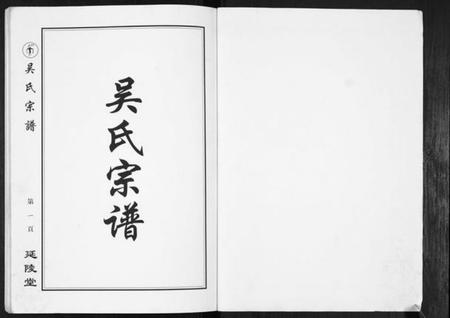 吴氏宗谱
吴氏宗譜
第一頁
延陵堂